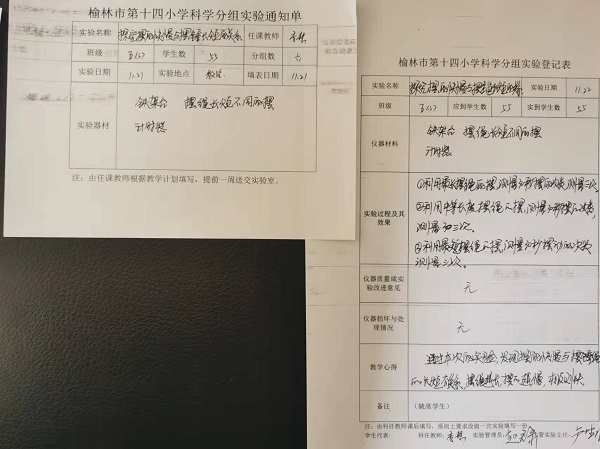 榆林市第十四小学科学分组实验通知单
实验名称 探究摆的快慢与摆绳长短的关系 任课教师
班级 五(2) 学生数 55 分组数 六
实验日期 11.21 实验地点 填表日期 11.21
实验器材
铁架台 摆绳长短不同的摆
计时器
注：由任课教师根据教学计划填写，提前一周送交实验室。
榆林市第十四小学科学分组实验登记表
实验名称 探究摆的快慢与摆绳长短的关系 实验日期 11.22
班级 五(2) 应到学生数 55 实到学生数 55
仪器材料
铁架台 摆绳长短不同的摆
计时器
实验过程及其效果
①利用最长摆绳的摆,测量 秒摆的次数,测量三次。
②利用中等长度摆绳的摆,测量 秒摆的次数,
测量 三次。
③利用最短摆绳的摆,测量 秒摆动的次数
测量三次。
仪器质量或实验改进意见 无
仪器损坏与处理情况 无
教学心得
通过本次的实验,发现摆的快慢与摆绳
的长短有关系,摆绳越长,摆的越慢,相反则快
备注 (缺席学生)
注：由科任教师课后填写，原则上要求没做一次实验填写一份。
学生代表： 科任教师： 实验管理员： 管实验主任：